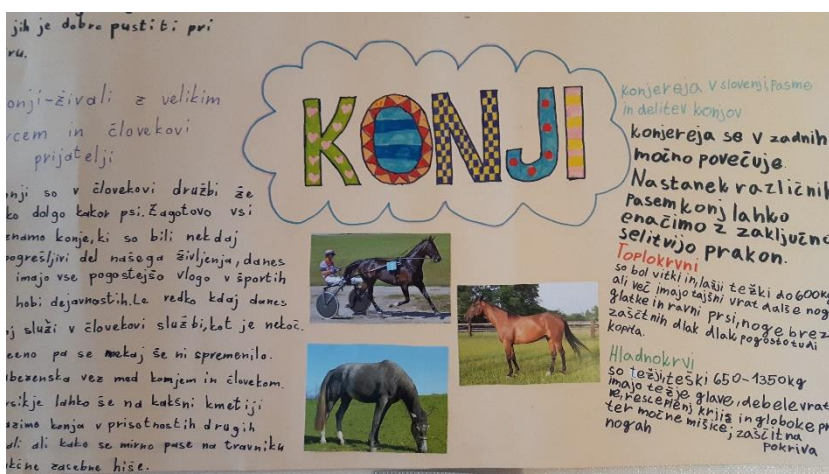 jih je dobro pustiti pri
ru.
onji-živali z velikim
rcem in človekovi
prijatelji
nji so v človekovi družbi že
ko dolgo kakor psi. Zagotovo vsi
znamo konje, ki so bili nekdaj
pogrešljivi del našega življenja, danes
imajo vse pogostejšo vlogo v športih
hobi dejavnostih. Le redko kdaj danes
j služi v človekovi službi, kot je nekoč.
pa se nekaj še ni spremenilo.
ubezenska vez med konjem in človekom.
lahko še na kakšni kmetiji
azimo konja v prisotnostih drugih
ali kako se mirno pase na travniku
zasebne hiše.
KONJI
konjereja v sloveniji, Pasme
in delitev konjov
konjereja se v zadnih
močno povečuje.
Nastanek različnih
pasem konj lahko
enačimo z zaključno
selitvijo prakon.
Toplokrvni
so bol vitki in lažji težki do 600kg
ali več imajo tajšni vrat dalše nog
glatke in ravni prsi, noge brez
zaščitnih dlak dlak pogosto tudi
kopita.
Hladnokrvi
so težji, teški 650-1350kg
imajo težje glave, debele vrat
krjiž in globoke pr
ter močne mišice, zaščitna
pokriva
nogah